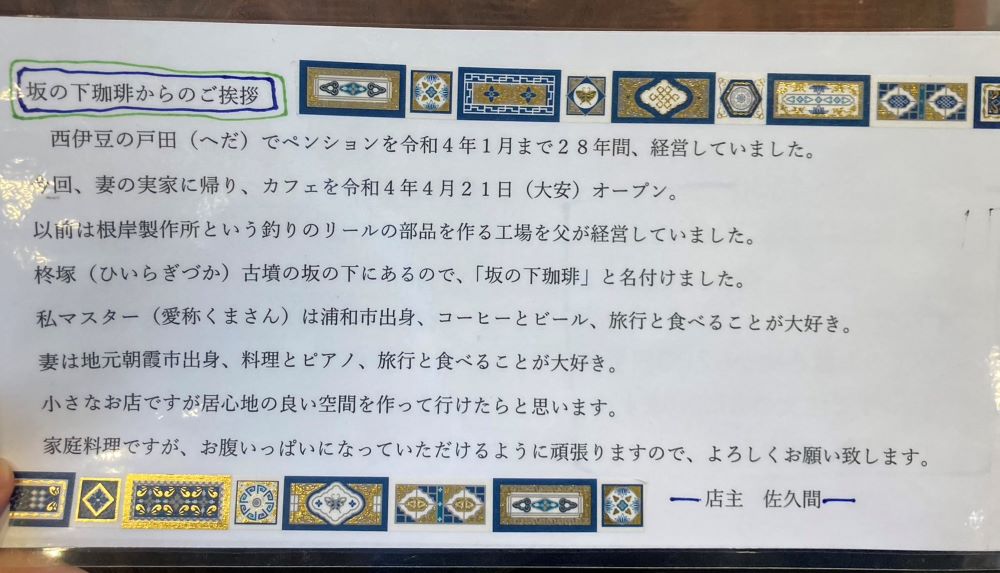 坂の下珈琲からのご挨拶
西伊豆の戸田（へだ）でペンションを令和４年１月まで２８年間、経営していました。
今回、妻の実家に帰り、カフェを令和４年４月２１日（大安）オープン。
以前は根岸製作所という釣りのリールの部品を作る工場を父が経営していました。
柊塚（ひいらぎづか）古墳の坂の下にあるので、「坂の下珈琲」と名付けました。
私マスター（愛称くまさん）は浦和市出身、コーヒーとビール、旅行と食べることが大好き。
妻は地元朝霞市出身、料理とピアノ、旅行と食べることが大好き。
小さなお店ですが居心地の良い空間を作って行けたらと思います。
家庭料理ですが、お腹いっぱいになっていただけるように頑張りますので、よろしくお願い致します。
店主　佐久間